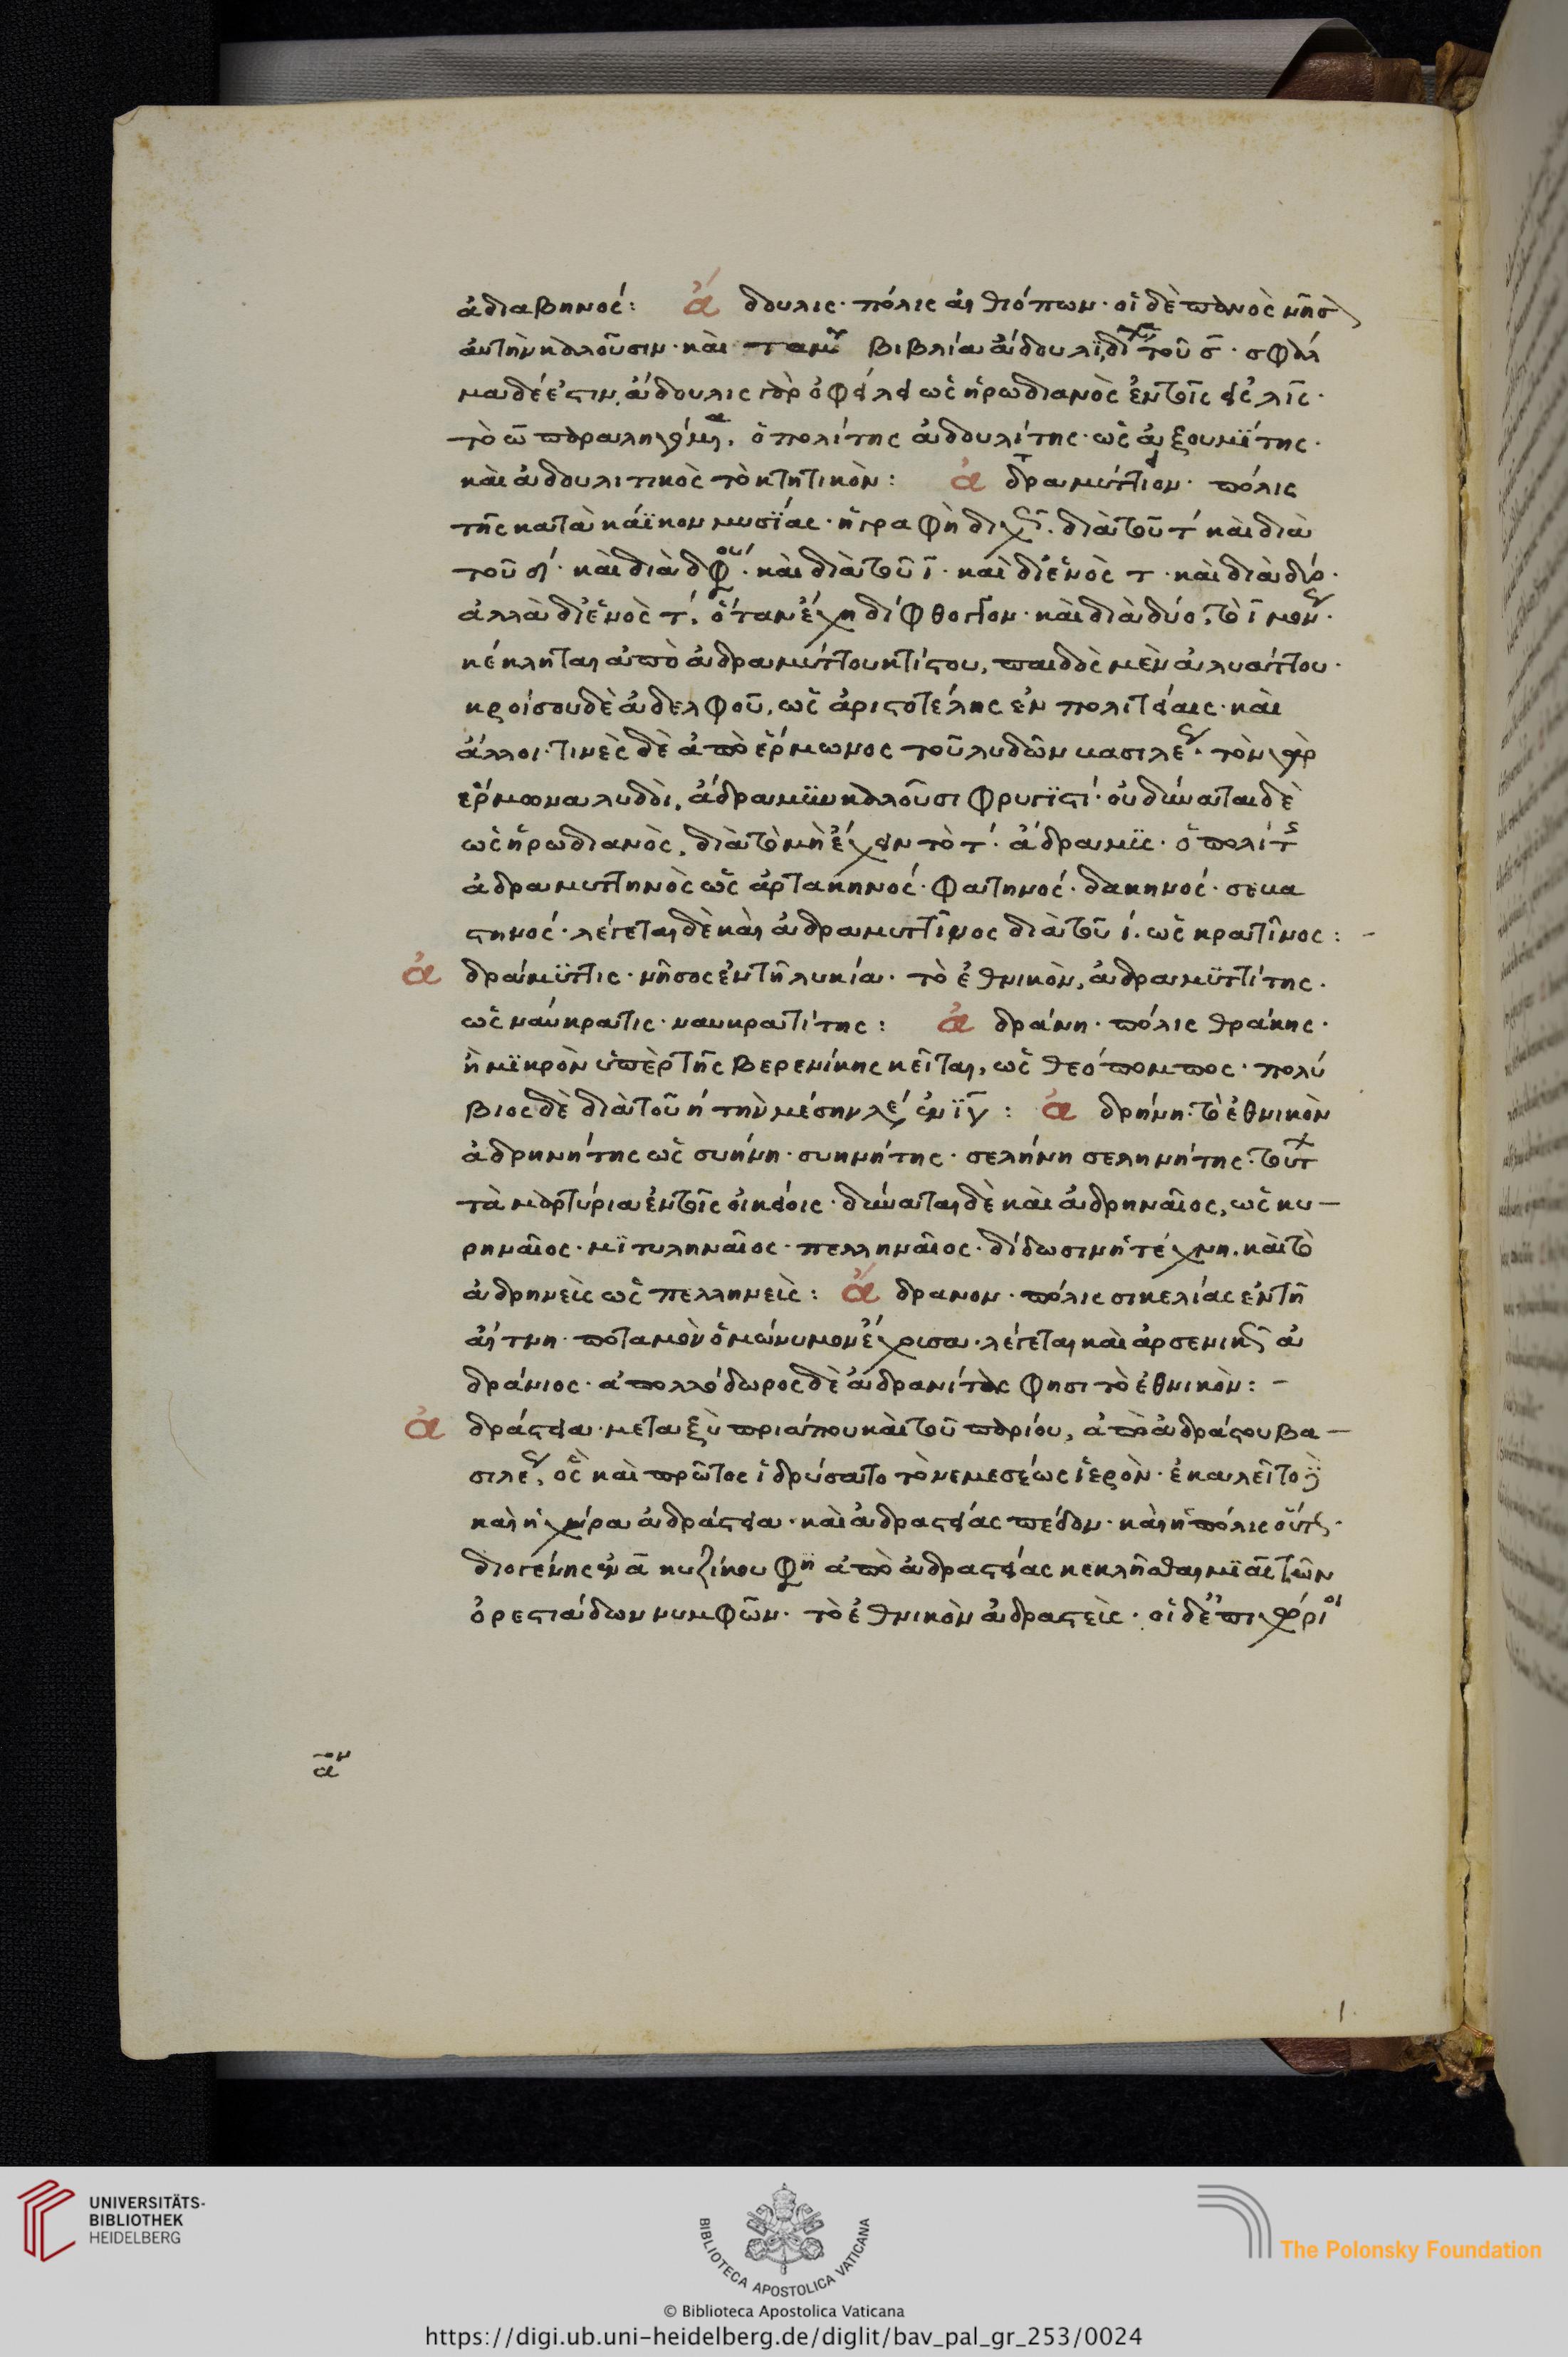 ἀδιαβηνός: ἄ δουλις· πόλις αἰθιόπων· οἱ δὲ
αὐτὴν καλοῦσιν· καὶ βιβλία ἄδουλι, τοῦ σ̄· σφάλ
μα δέ ἐστιν, ἄδουλις γὰρ ὀφείλει ὡς ἡρωδιανὸς ἐν τοῖς
τὸ ω̄ ὁ πολίτης ἀδουλίτης· ὡς αἰξουμΐτης·
καὶ ἀδουλιτικὸς τὸ κτητικὸν: ἀ δραμύττιον· πόλις
τῆς κατὰ κάϊκον μυσΐας· ἡ γραφὴ διχ διὰ τοῦ τ καὶ διὰ
τοῦ · καὶ διὰ · καὶ διὰ τοῦ ῑ· καὶ δι' ἑνὸς τ· καὶ διὰ δύο·
ἀλλὰ δι' ἑνὸς τ, ὅταν ἔχη δίφθογγον· καὶ διὰ δύο, τὸ ῑ μον·
κέκληται ἀπὸ ἀδραμύττου κτίστου, παιδὸς μὲν ἀλυάττου·
κροίσου δὲ ἀδελφοῦ, ὡς ἀριστοτέλης ἐν πολιτείαις· καὶ
ἄλλοι· τινὲς δὲ ἀπὸ ἕρμωνος τοῦ λυδῶν βασιλε· τὸν γὰρ
ἕρμωνα λυδοὶ, ἄδραμϋν καλοῦσι φρυγϊστί· οὐ δύναται δὲ
ὡς ἡρωδιανὸς, διὰ τὸ μὴ ἔχειν τὸ τ· ἄδραμϊς· ὁ πολίτ
ἀδραμυττηνὸς ὡς ἀρτακηνός· φατηνός· δακηνός· σεβα
στηνός· λέγεται δὲ καὶ ἀδραμυττῖνος διὰ τοῦ ι· ὡς κρατῖνος: –
ἀ δράμϋττις· νῆσος ἐν τῆ λυκία· τὸ ἐθνικὸν, ἀδραμϋττίτης·
ὡς ναύκρατις· ναυκρατίτης: ἀ δράνη· πόλις θράκης·
ἡ μϊκρὸν ὑπὲρ τῆς βερενίκης κεῖται, ὡς θεόπομπος· πολύ
βιος δὲ διὰ τοῦ η τὴν μέσην λέ ἐν ῑγ̄: ἀ δρήνη· τὸ ἐθνικὸν
ἀδρηνήτης ὡς συήνη· συηνήτης· σελήνη σεληνήτης·
τὰ μαρτύρια ἐν τοῖς οἰκείοις· δύναται δὲ καὶ ἀδρηναῖος, ὡς κυ–
ρηναῖος· μϊτυληναῖος· πελληναῖος· δίδωσιν ἡ τέχνη· καὶ τὸ
ἀδρηνεὶς ὡς πελληνεὶς: ἄ δρανον· πόλις σικελίας ἐν τῆ
αἴτνη· ποταμὸν ὁμώνυμον ἔχουσα· λέγεται καὶ ἀρσενικ ἀ
δράνιος· ἀπολλόδωρος δὲ ἀδρανίτας φησὶ τὸ ἐθνικὸν: –
ἀ δράστεια· μεταξὺ πριάπου καὶ τοῦ παρίου, ἀπὸ ἀδράστου βα–
σιλε, ὃς καὶ πρῶτος ἱδρύσατο τὸ νεμεσέως ἱερὸν· ἐκαλεῖτο
καὶ ἡ χώρα ἀδράστεια· καὶ ἀδραστείας πεδδον· καὶ ἡ πόλις οὕτ·
διογένης ἐν ᾱ κυζίκου φη ἀπὸ ἀδραστείας κεκλῆσθαι μϊᾶς τῶν
ὀρεστιάδων νυμφῶν· τὸ ἐθνικὸν ἀδραστεὶς· οἱ δὲ ἐπιχώριοι
ᾱον
1
UNIVERSITÄTS-
BIBLIOTHEK
HEIDELBERG
BIBLIOTECA APOSTOLICA VATICANA
The Polonsky Foundation
© Biblioteca Apostolica Vaticana
https://digi.ub.uni-heidelberg.de/diglit/bav_pal_gr_253/0024